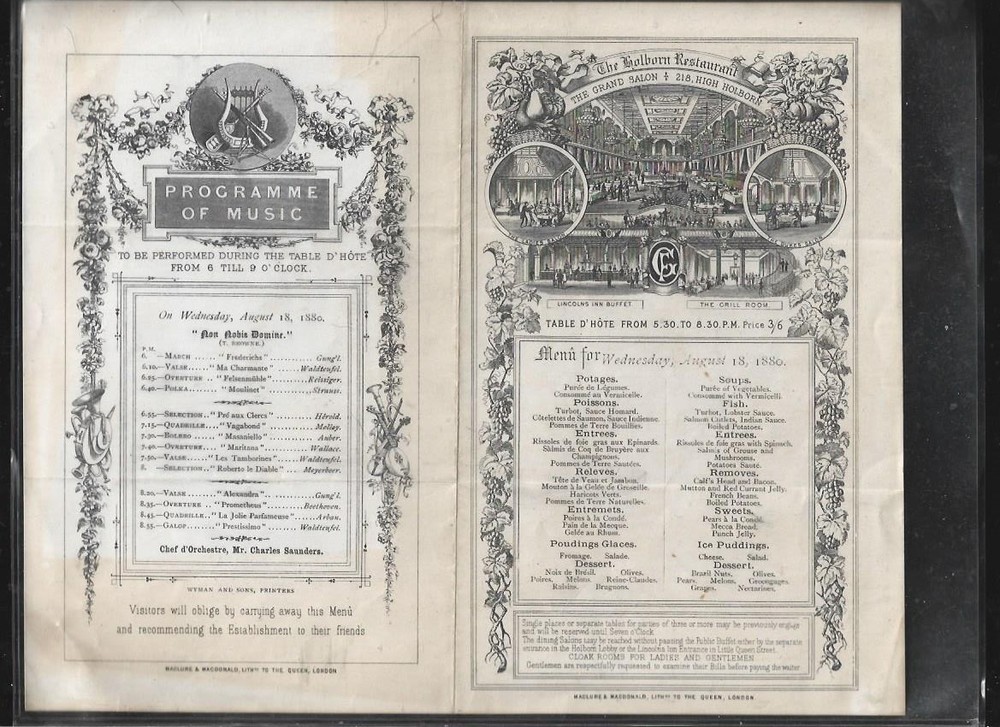 PROGRAMME
OF MUSIC
TO BE PERFORMED DURING THE TABLE D'HÔTE
FROM 6 TILL 9 O'CLOCK.
On Wednesday, August 18, 1880.
"Non Nobis Domine."
(T. BROWNE.)
P.M.
6. —MARCH ...... "Frederichs" .......... Gung'l.
6.10.—VALSE...... "Ma Charmante" ..... Waldteufel.
6.25.—OVERTURE .. "Felsenmühle" ....... Reissiger.
6.40.—POLKA...... "Moulinet" .......... Strauss.
6.55.—SELECTION.. "Pré aux Clercs" ..... Hérold.
7.15.—QUADRILLE.. "Vagabond" ........
7.30.—BOLERO .... "Masaniello" ........ Auber.
7.40.—OVERTURE.... "Maritana" ........ Wallace.
7.50.—VALSE ...... "Les Tamborines" .. Waldteufel.
8. —SELECTION.. "Roberto le Diable" .. Meyerbeer.
8.20.—VALSE ...... "Alexandra" .......... Gung'l.
8.35.—OVERTURE .. "Prometheus" ...... Beethoven.
8.45.—QUADRILLE.. "La Jolie Parfumeuse" ...... Arban.
8.55.—GALOP........ "Prestissimo" ...... Waldteufel.
Chef d'Orchestre, Mr. Charles Saunders.
WYMAN AND SONS, PRINTERS
Visitors will oblige by carrying away this Menû
and recommending the Establishment to their friends
MACLURE & MACDONALD, LITHRS TO THE QUEEN, LONDON
The Holborn Restaurant
THE GRAND SALON 218, HIGH HOLBORN
QUEEN SALON
LINCOLNS INN BUFFET
THE GRILL ROOM
TABLE D'HÔTE FROM 5.30. TO 8.30. P.M. Price 3/6
Menû for Wednesday, August 18, 1880.
Potages.
Purée de Légumes.
Consommé au Vermicelle.
Poissons.
Turbot, Sauce Homard.
Côtelettes de Saumon, Sauce Indienne.
Pommes de Terre Bouillies.
Entrees.
Rissoles de foie gras aux Epinards.
Salmis de Coq de Bruyère aux
Champignons.
Pommes de Terre Sautées.
Releves.
Tête de Veau et Jambon.
Mouton à la Gelée de Groseille.
Haricots Verts.
Pommes de Terre Naturelles.
Entremets.
Poires à la Condé.
Pain de la Mecque.
Gelée au Rhum.
Poudings Glaces.
Fromage. Salade.
Dessert.
Noix de Brésil. Olives.
Poires. Melons. Reine-Claudes.
Raisins. Brugnons.
Soups.
Purée of Vegetables.
Consommé with Vermicelli.
Fish.
Turbot, Lobster Sauce.
Salmon Cutlets, Indian Sauce.
Boiled Potatoes.
Entrees.
Rissoles of foie gras with Spinach.
Salmis of Grouse and
Mushrooms.
Potatoes Sauté.
Removes.
Calf's Head and Bacon.
Mutton and Red Currant Jelly.
French Beans.
Boiled Potatoes.
Sweets.
Pears à la Condé.
Mecca Bread.
Punch Jelly.
Ice Puddings.
Cheese. Salad.
Dessert.
Brazil Nuts. Olives.
Pears. Melons. Greengages.
Grapes. Nectarines.
Single places or separate tables for parties of three or more may be previously engaged
and will be reserved until Seven o'Clock
The dining Salons may be reached without passing the Public Buffet either by the separate
entrance in the Holborn Lobby or the Lincolns Inn Entrance in Little Queen Street.
CLOAK ROOMS FOR LADIES AND GENTLEMEN
Gentlemen are respectfully requested to examine their Bills before paying the waiter
MACLURE & MACDONALD, LITHRS TO THE QUEEN, LONDON